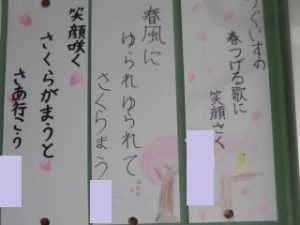 うぐいすの
春つげる歌に
笑顔さく
春風に
ゆられゆられて
さくらまう
笑顔咲く
さくらがまうと
さあ行こう